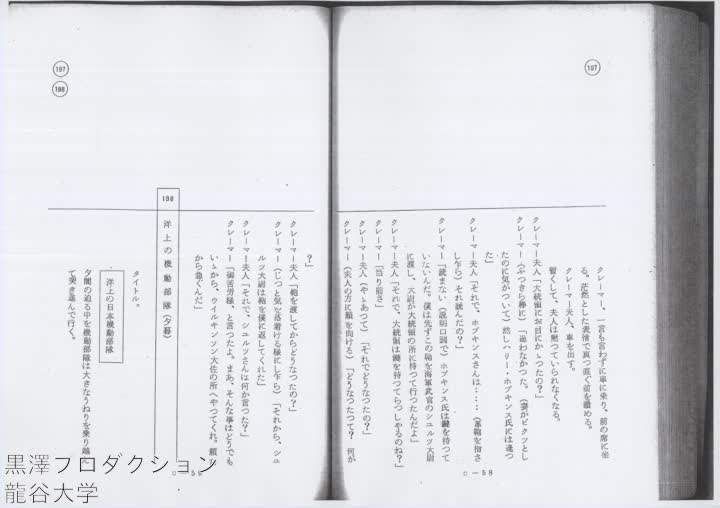 197
クレーマー、一言も言わずに車に乗り、前の席に坐
る。茫然とした表情で真っ直ぐ前を瞶める。
クレーマー夫人、車を出す。
暫くして、夫人は黙っていられなくなる。
クレーマー夫人「大統領にお目にかゝったの？」
クレーマー（ぶつきら棒に）「逢わなかつた。（妻がビクッとし
たのに気がついて）然しハリー・ホプキンス氏には逢っ
た」
クレーマー夫人「それで、ホプキンスさんは‥‥（革鞄を指さ
し乍ら）それ読んだの？」
クレーマー「読まない（説明口調で）ホプキンス氏は鍵を持つて
いないんだ。僕は先ずこの鞄を海軍武官のシュルツ大尉
に渡し、大尉が大統領の所に持つて行つたんだよ」
クレーマー夫人「それで、大統領は鍵を持つてらつしやるのね？」
クレーマー「当り前さ」
クレーマー夫人（やゝあつて）「それでどうなつたの？」
クレーマー（夫人の方に顔を向ける）「どうなつたつて？　何が
C—58
197
198
？」
クレーマー夫人「鞄を渡してからどうなつたの？」
クレーマー（じっと気を落着ける様にし乍ら）「それから、シュ
ルツ大尉は鞄を僕に返してくれた」
クレーマー夫人「それで、シュルツさんは何か言つた？」
クレーマー「御苦労様、と言つたよ。まあ、そんな事はどうでも
いゝから、ウイルキンソン大佐の所へやつてくれ。頼
から急ぐんだ」
198 洋上の機動部隊（夕暮）
タイトル。
洋上の日本機動部隊
夕闇の迫る中を機動部隊は大きなうねりを乗り越え
て突き進んで行く。
C—59
黒澤プロダクション
龍谷大学